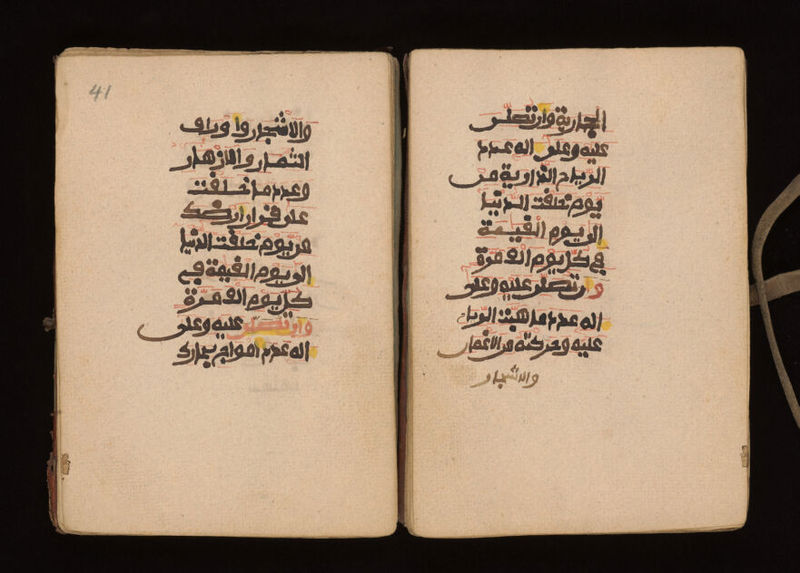 الجارية وان تصلى
عليه وعلى اله عدد
الرياح الذارية من
يوم خلقت الدنيا
الى يوم القيمة
في كل يوم الف مرة
وان تصلى عليه وعلى
اله عدد ما هبت الرياح
عليه وحركته من الاغصان
والاشجار
41
والاشجار واوراق
الثمار والازهار
وعدد ما خلقت
على قرار ارضك
من يوم خلقت الدنيا
الى يوم القيمة في
كل يوم الف مرة
وان تصلى عليه وعلى
اله عدد امواج بحارك